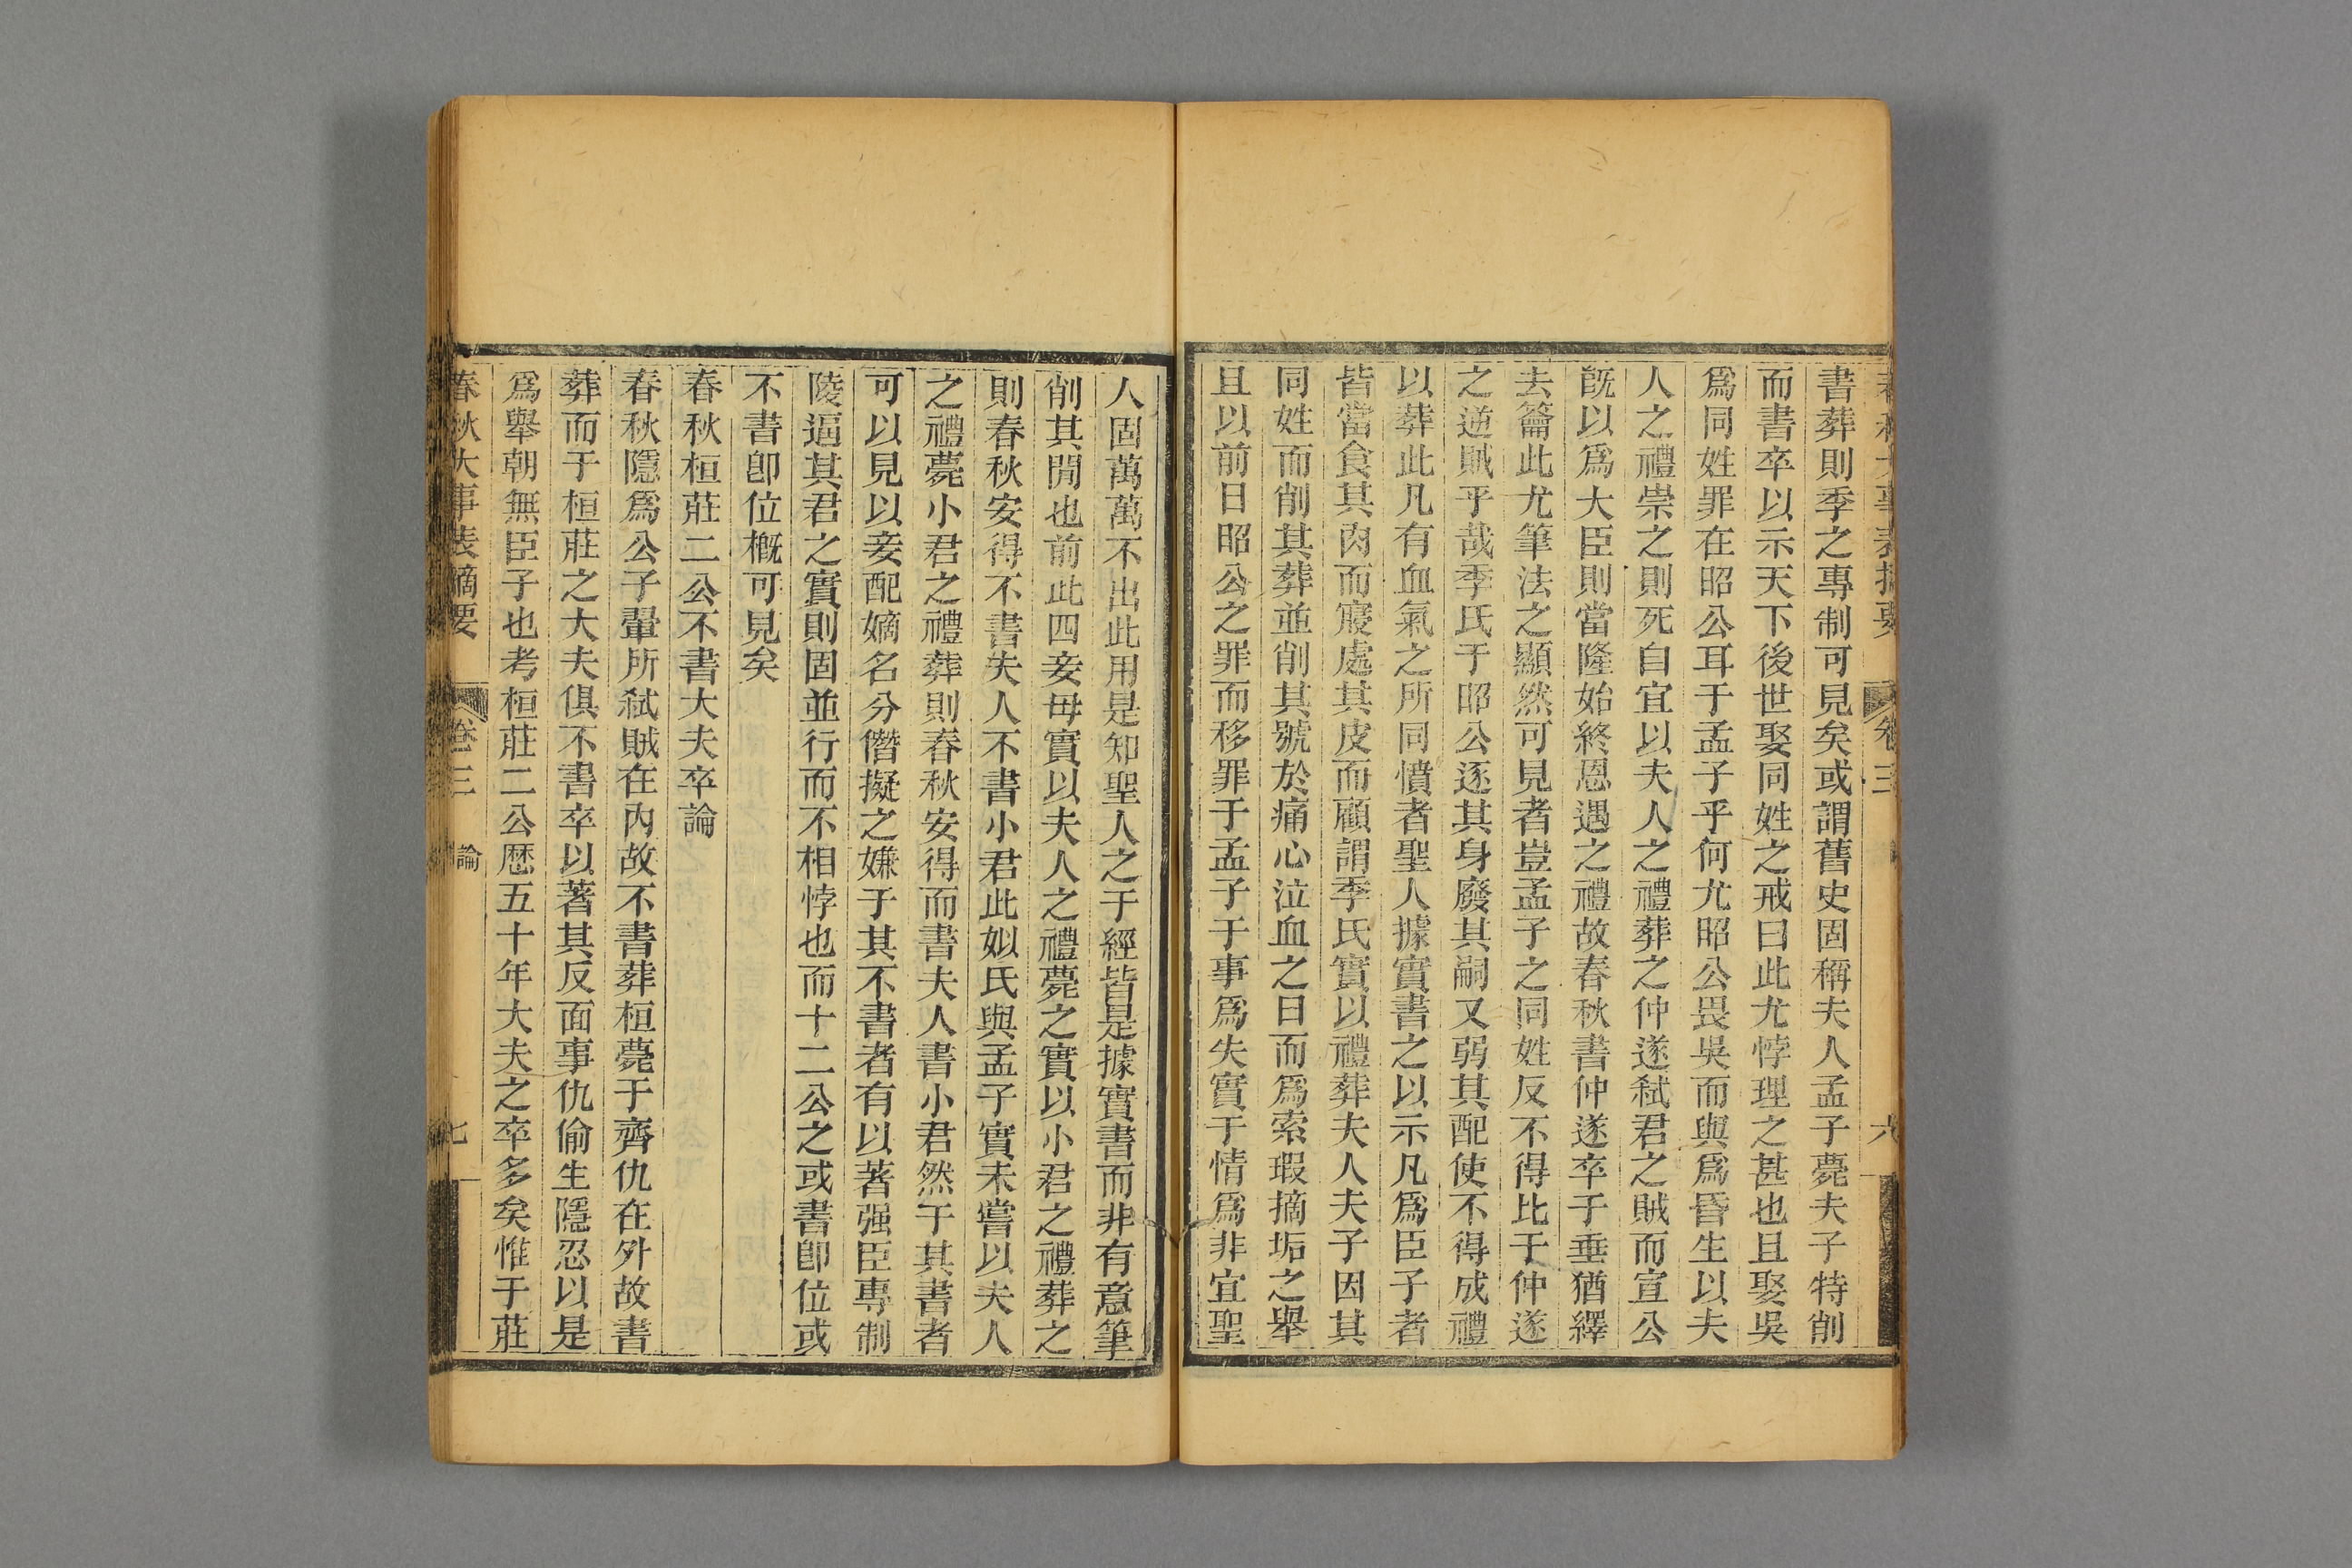 春秋大事表摘要 卷三 六
書葬則季之專制可見矣或謂舊史固稱夫人孟子薨夫子特削
而書卒以示天下後世娶同姓之戒曰此尤悖理之甚也且娶吳
爲同姓罪在昭公耳于孟子乎何尤昭公畏吳而與爲昏生以夫
人之禮崇之則死自宜以夫人之禮葬之仲遂弒君之賊而宣公
旣以爲大臣則當隆始終恩遇之禮故春秋書仲遂卒于垂猶繹
去籥此尤筆法之顯然可見者豈孟子之同姓反不得比于仲遂
之逆賊乎哉季氏于昭公逐其身廢其嗣又弱其配使不得成禮
以葬此凡有血氣之所同憤者聖人據實書之以示凡爲臣子者
皆當食其肉而寢處其皮而顧謂季氏實以禮葬夫人夫子因其
同姓而削其葬並削其號於痛心泣血之日而爲索瑕摘垢之舉
且以前日昭公之罪而移罪于孟子于事爲失實于情爲非宜聖
人固萬萬不出此用是知聖人之于經皆是據實書而非有意筆
削其閒也前此四妾母實以夫人之禮薨之實以小君之禮葬之
則春秋安得不書夫人不書小君此姒氏與孟子實未嘗以夫人
之禮薨小君之禮葬則春秋安得而書夫人書小君然于其書者
可以見以妾配嫡名分僭擬之嫌于其不書者有以著强臣專制
陵逼其君之實則固並行而不相悖也而十二公之或書卽位或
不書卽位槪可見矣
春秋桓莊二公不書大夫卒論
春秋隱爲公子翬所弒賊在內故不書葬桓薨于齊仇在外故書
葬而于桓莊之大夫俱不書卒以著其反面事仇偷生隱忍以是
爲舉朝無臣子也考桓莊二公歷五十年大夫之卒多矣惟于莊
春秋大事表摘要 卷三 論 七